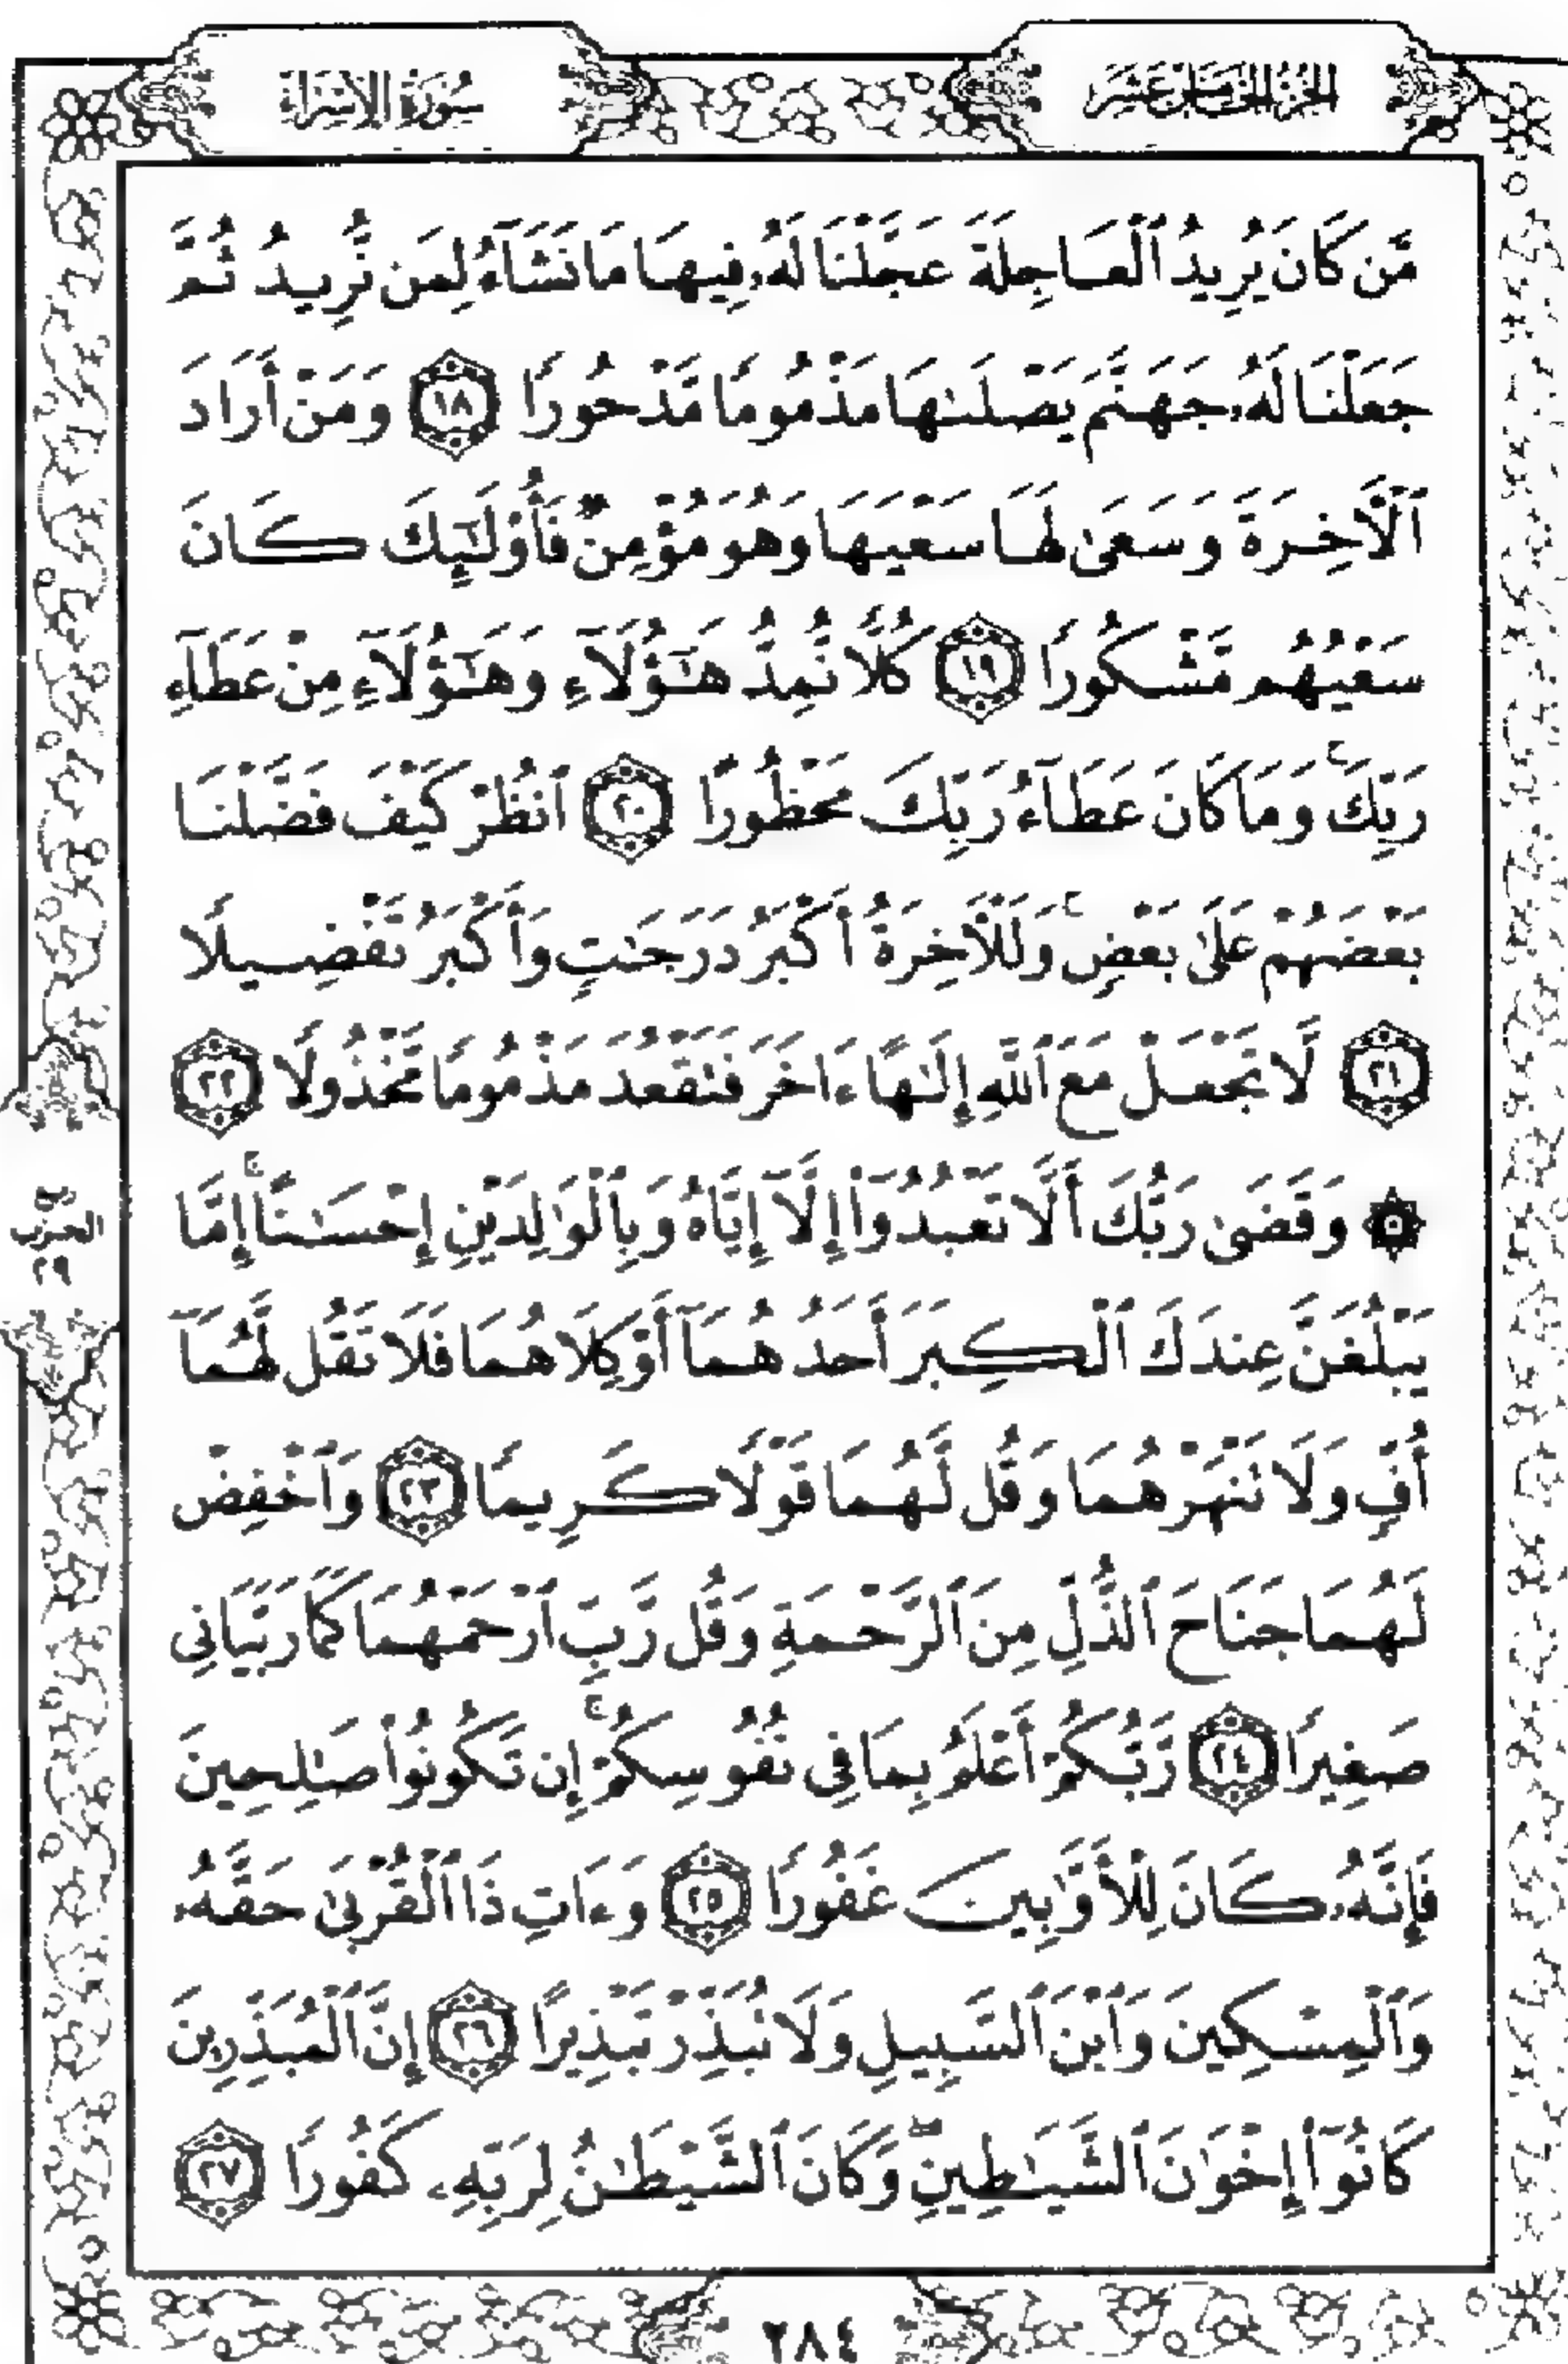 الجزء الخامس عشر
سورة الإسراء
مَّن كَانَ يُرِيدُ ٱلْعَاجِلَةَ عَجَّلْنَا لَهُۥ فِيهَا مَا نَشَآءُ لِمَن نُّرِيدُ ثُمَّ
جَعَلْنَا لَهُۥ جَهَنَّمَ يَصْلَىٰهَا مَذْمُومًا مَّدْحُورًا ١٨ وَمَنْ أَرَادَ
ٱلْـَٔاخِرَةَ وَسَعَىٰ لَهَا سَعْيَهَا وَهُوَ مُؤْمِنٌ فَأُو۟لَـٰٓئِكَ كَانَ
سَعْيُهُم مَّشْكُورًا ١٩ كُلًّا نُّمِدُّ هَـٰٓؤُلَآءِ وَهَـٰٓؤُلَآءِ مِنْ عَطَآءِ
رَبِّكَ ۚ وَمَا كَانَ عَطَآءُ رَبِّكَ مَحْظُورًا ٢٠ ٱنظُرْ كَيْفَ فَضَّلْنَا
بَعْضَهُمْ عَلَىٰ بَعْضٍ ۚ وَلَلْـَٔاخِرَةُ أَكْبَرُ دَرَجَـٰتٍ وَأَكْبَرُ تَفْضِيلًا
٢١ لَّا تَجْعَلْ مَعَ ٱللَّهِ إِلَـٰهًا ءَاخَرَ فَتَقْعُدَ مَذْمُومًا مَّخْذُولًا ٢٢
۞ وَقَضَىٰ رَبُّكَ أَلَّا تَعْبُدُوٓا۟ إِلَّآ إِيَّاهُ وَبِٱلْوَٰلِدَيْنِ إِحْسَـٰنًا ۚ إِمَّا
يَبْلُغَنَّ عِندَكَ ٱلْكِبَرَ أَحَدُهُمَآ أَوْ كِلَاهُمَا فَلَا تَقُل لَّهُمَآ
أُفٍّ وَلَا تَنْهَرْهُمَا وَقُل لَّهُمَا قَوْلًا كَرِيمًا ٢٣ وَٱخْفِضْ
لَهُمَا جَنَاحَ ٱلذُّلِّ مِنَ ٱلرَّحْمَةِ وَقُل رَّبِّ ٱرْحَمْهُمَا كَمَا رَبَّيَانِى
صَغِيرًا ٢٤ رَّبُّكُمْ أَعْلَمُ بِمَا فِى نُفُوسِكُمْ ۚ إِن تَكُونُوا۟ صَـٰلِحِينَ
فَإِنَّهُۥ كَانَ لِلْأَوَّٰبِينَ غَفُورًا ٢٥ وَءَاتِ ذَا ٱلْقُرْبَىٰ حَقَّهُۥ
وَٱلْمِسْكِينَ وَٱبْنَ ٱلسَّبِيلِ وَلَا تُبَذِّرْ تَبْذِيرًا ٢٦ إِنَّ ٱلْمُبَذِّرِينَ
كَانُوٓا۟ إِخْوَٰنَ ٱلشَّيَـٰطِينِ ۖ وَكَانَ ٱلشَّيْطَـٰنُ لِرَبِّهِۦ كَفُورًا ٢٧
الحزب
٢٩
٢٨٤